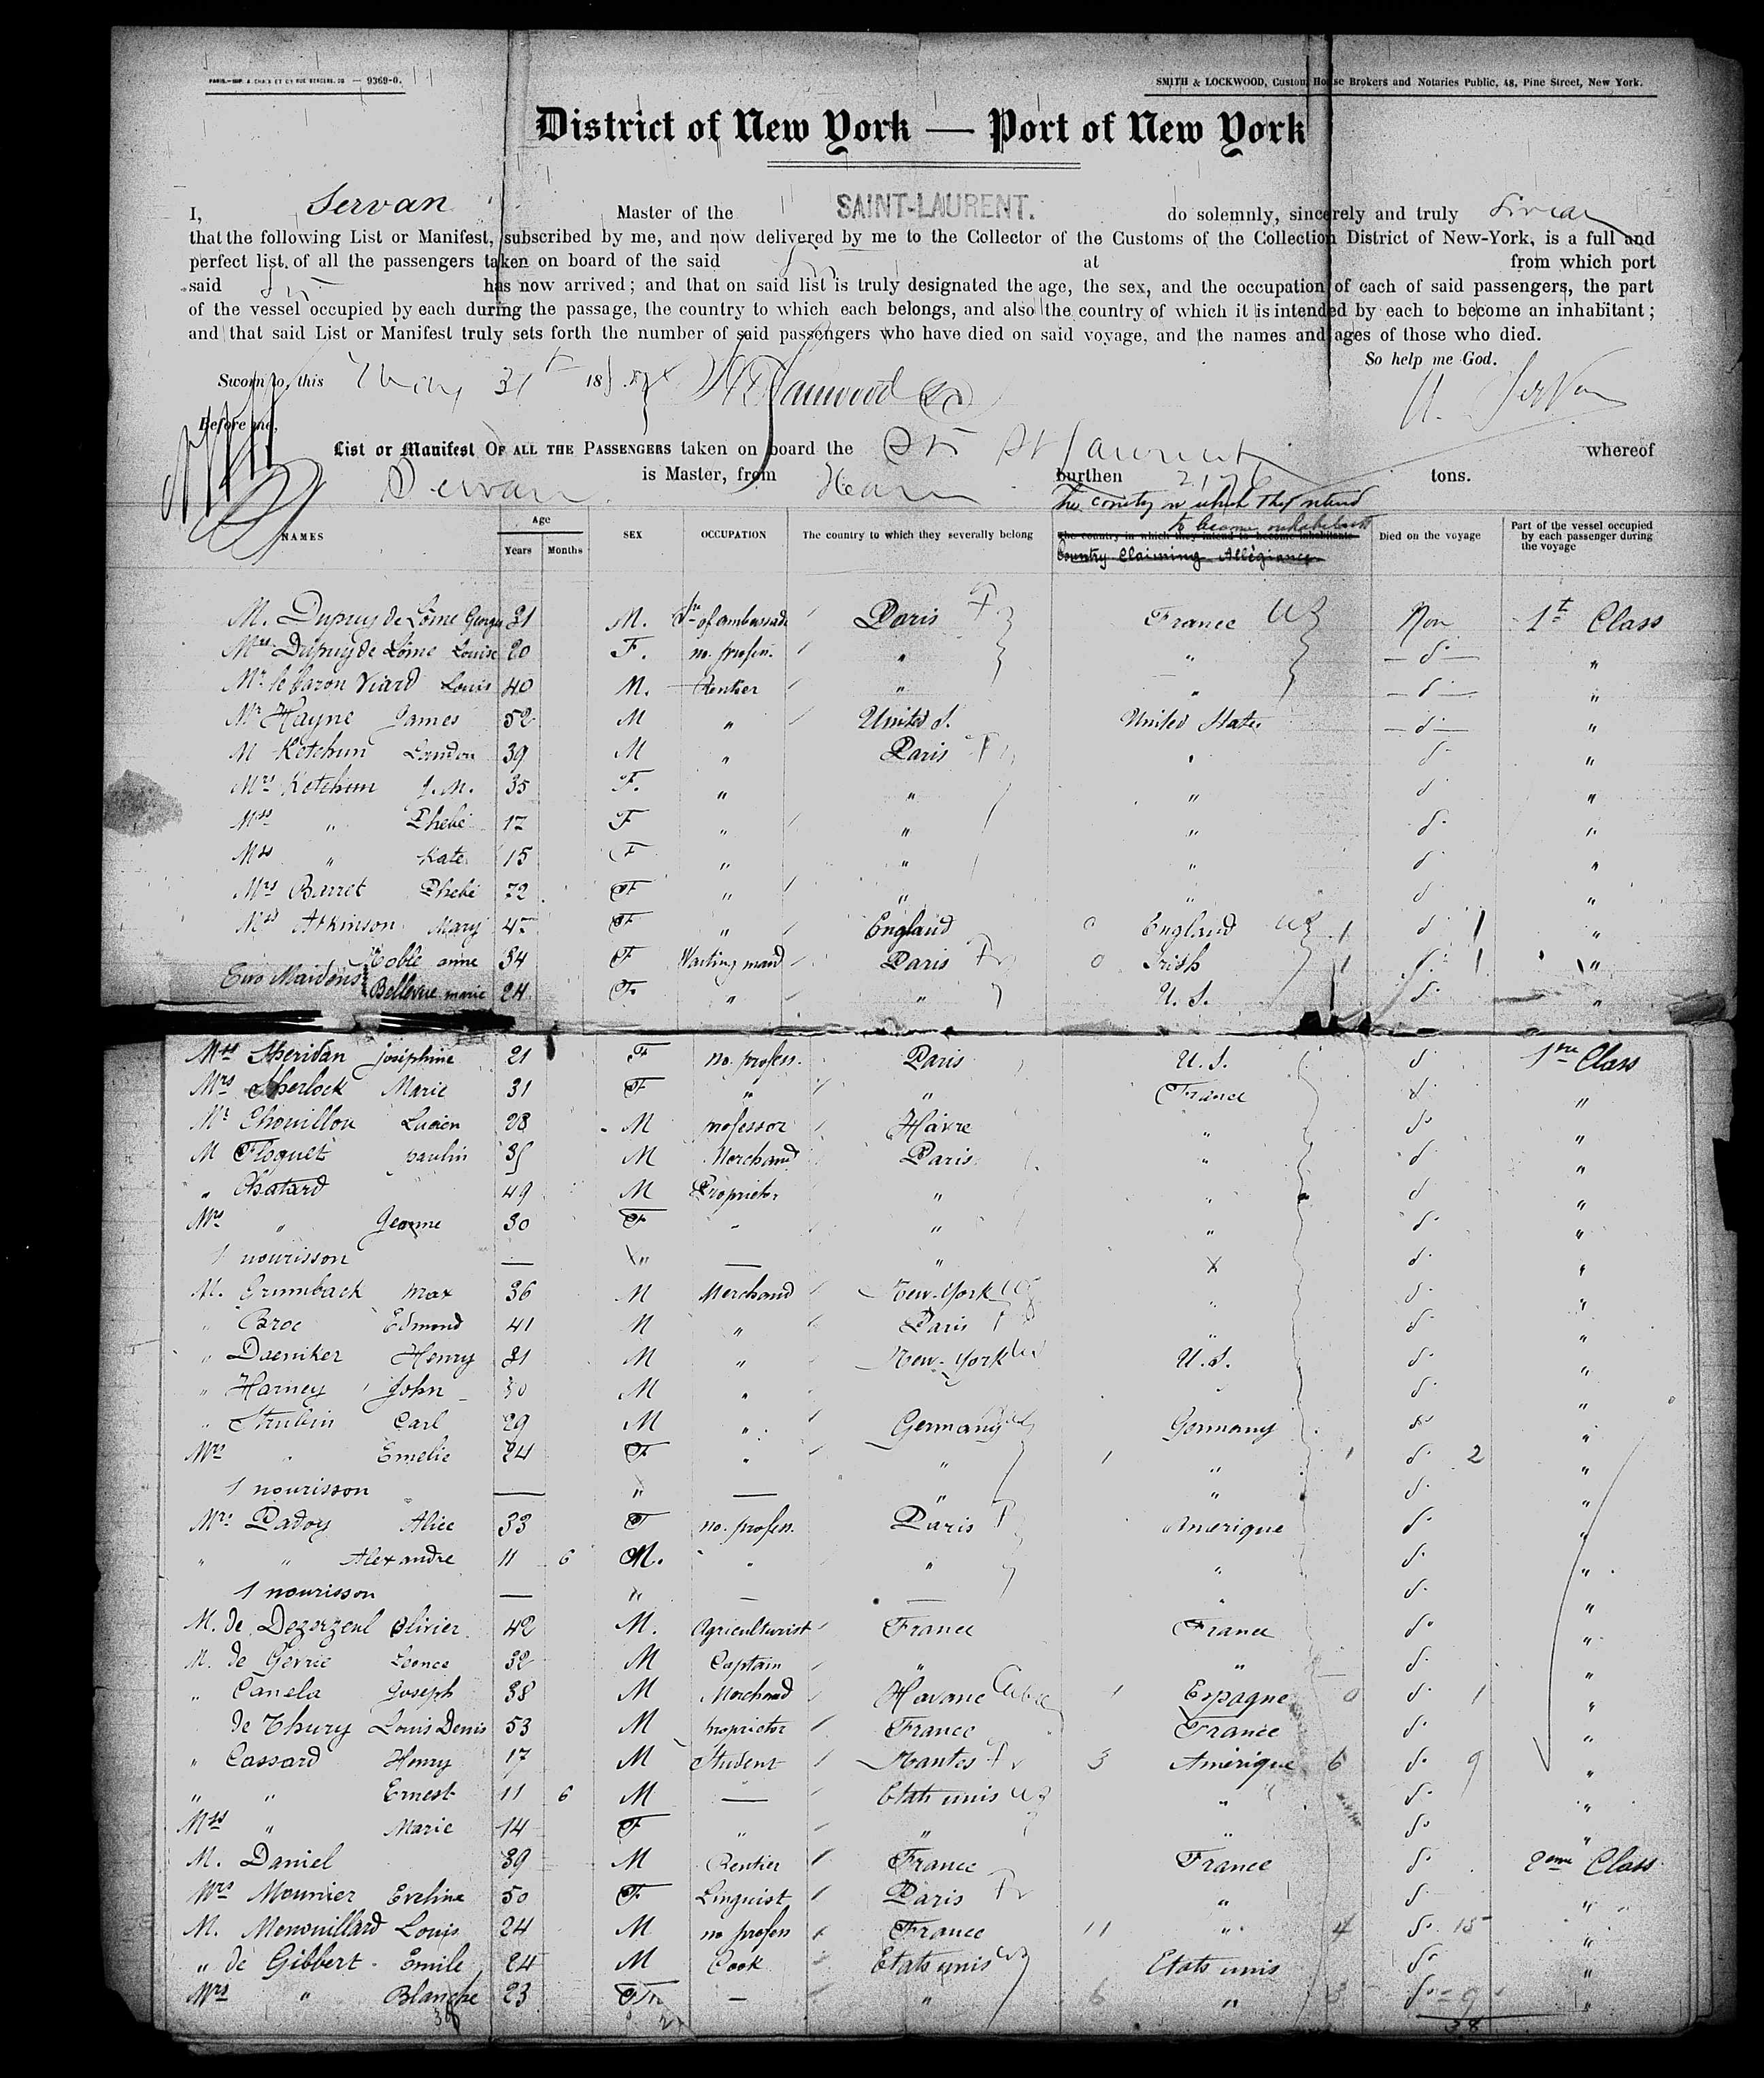 PARIS.—IMP. A. CHAIX ET Cie RUE BERGERE, 20 — 9369-0.
SMITH & LOCKWOOD, Custom House Brokers and Notaries Public, 48, Pine Street, New York.
District of New York — Port of New York
I, Servan Master of the SAINT-LAURENT. do solemnly, sincerely and truly swear
that the following List or Manifest, subscribed by me, and now delivered by me to the Collector of the Customs of the Collection District of New-York, is a full and
perfect list of all the passengers taken on board of the said at from which port
said has now arrived; and that on said list is truly designated the age, the sex, and the occupation of each of said passengers, the part
of the vessel occupied by each during the passage, the country to which each belongs, and also the country of which it is intended by each to become an inhabitant;
and that said List or Manifest truly sets forth the number of said passengers who have died on said voyage, and the names and ages of those who died.
So help me God.
Sworn to, this May 31st 188
Before me,
List or Manifest OF ALL THE PASSENGERS taken on board the SS St Laurent whereof
Servan is Master, from burthen tons.
The country in which they intend
to become inhabitants
NAMES Age SEX OCCUPATION The country to which they severally belong The country in which they intend to become inhabitants Died on the voyage Part of the vessel occupied by each passenger during the voyage
Years Months Country Claiming Allegiance
M. Dupuy de Lôme Georges 31 M. of ambassade Paris France Non 1st Class
Mrs Dupuy de Lôme Louise 20 F. no. profess. " " — do — "
Mr. le baron Viard Louis 40 M. Rentier " " — do — "
Mr Hayne James 52 M " United S. United States — do — "
M Ketchum Landon 39 M " Paris " do "
Mrs Ketchum J. M. 35 F. " " " do "
Miss " Phebé 17 F " " " do "
Miss " Kate 15 F " " " do "
Mrs Barret Phebé 72 F " " " do "
Miss Atkinson Mary 45 F " England 0 England 1 do 1 "
Two Maidens Toble anne 34 F Waiting maid Paris 0 Irish 1 do 1 "
Bellevue marie 24 F. " " U. S. do "
Miss Sheridan Joséphine 21 F no. profess. Paris U. S. do 1ère Class
Mrs Sherlock Marie 31 F " " France do "
Mr Chouillou Lucien 28 M professor Hâvre " do "
M Floquet paulin 35 M Merchand Paris " do "
" Chatard 49 M Proprietor " " do "
Mrs " Jeanne 30 F " " " do "
1 nourisson — " — " do "
M. Grumback Max 36 M Merchand New-York " do "
" Edmond 41 M " Paris " do "
" Daeniker Henry 31 M " New-York U. S. do "
" Harney John 30 M " " do "
" Strubin Carl 29 M " Germany Germany do "
Mrs " Emelie 24 F " " 1 " 1 do 2 "
1 nourisson — " — " " do "
Mrs Padoy Alice 33 F no. profess. Paris Amerique do "
" " Alexandre 11 6 M. " " " do "
1 nourisson — " — — " do "
M. de Olivier 42 M. Agriculturist France France do "
M. de Gevrie Léonce 32 M Captain " " do "
" Canela Joseph 38 M Merchand Havane Cuba 1 Espagne 0 do 1 "
de Thury Louis Denis 53 M proprietor France France do "
" Cassard Henry 17 M Student Nantes 3 Amérique 6 do 9 "
" " Ernest 11 6 M — Etats unis " do "
Miss " Marie 14 F " " " do "
M. Daniel 39 M Rentier France France do 2eme Class
Mrs Mounier Eveline 50 F Linguist Paris " do "
M. Menouillard Louis 24 M no profess France 11 " 4 do 15 "
" de Gibbert Emile 24 M Cook Etats unis Etats unis do "
Mrs " Blanche 23 F — " 6 " 3 do 9 "
38